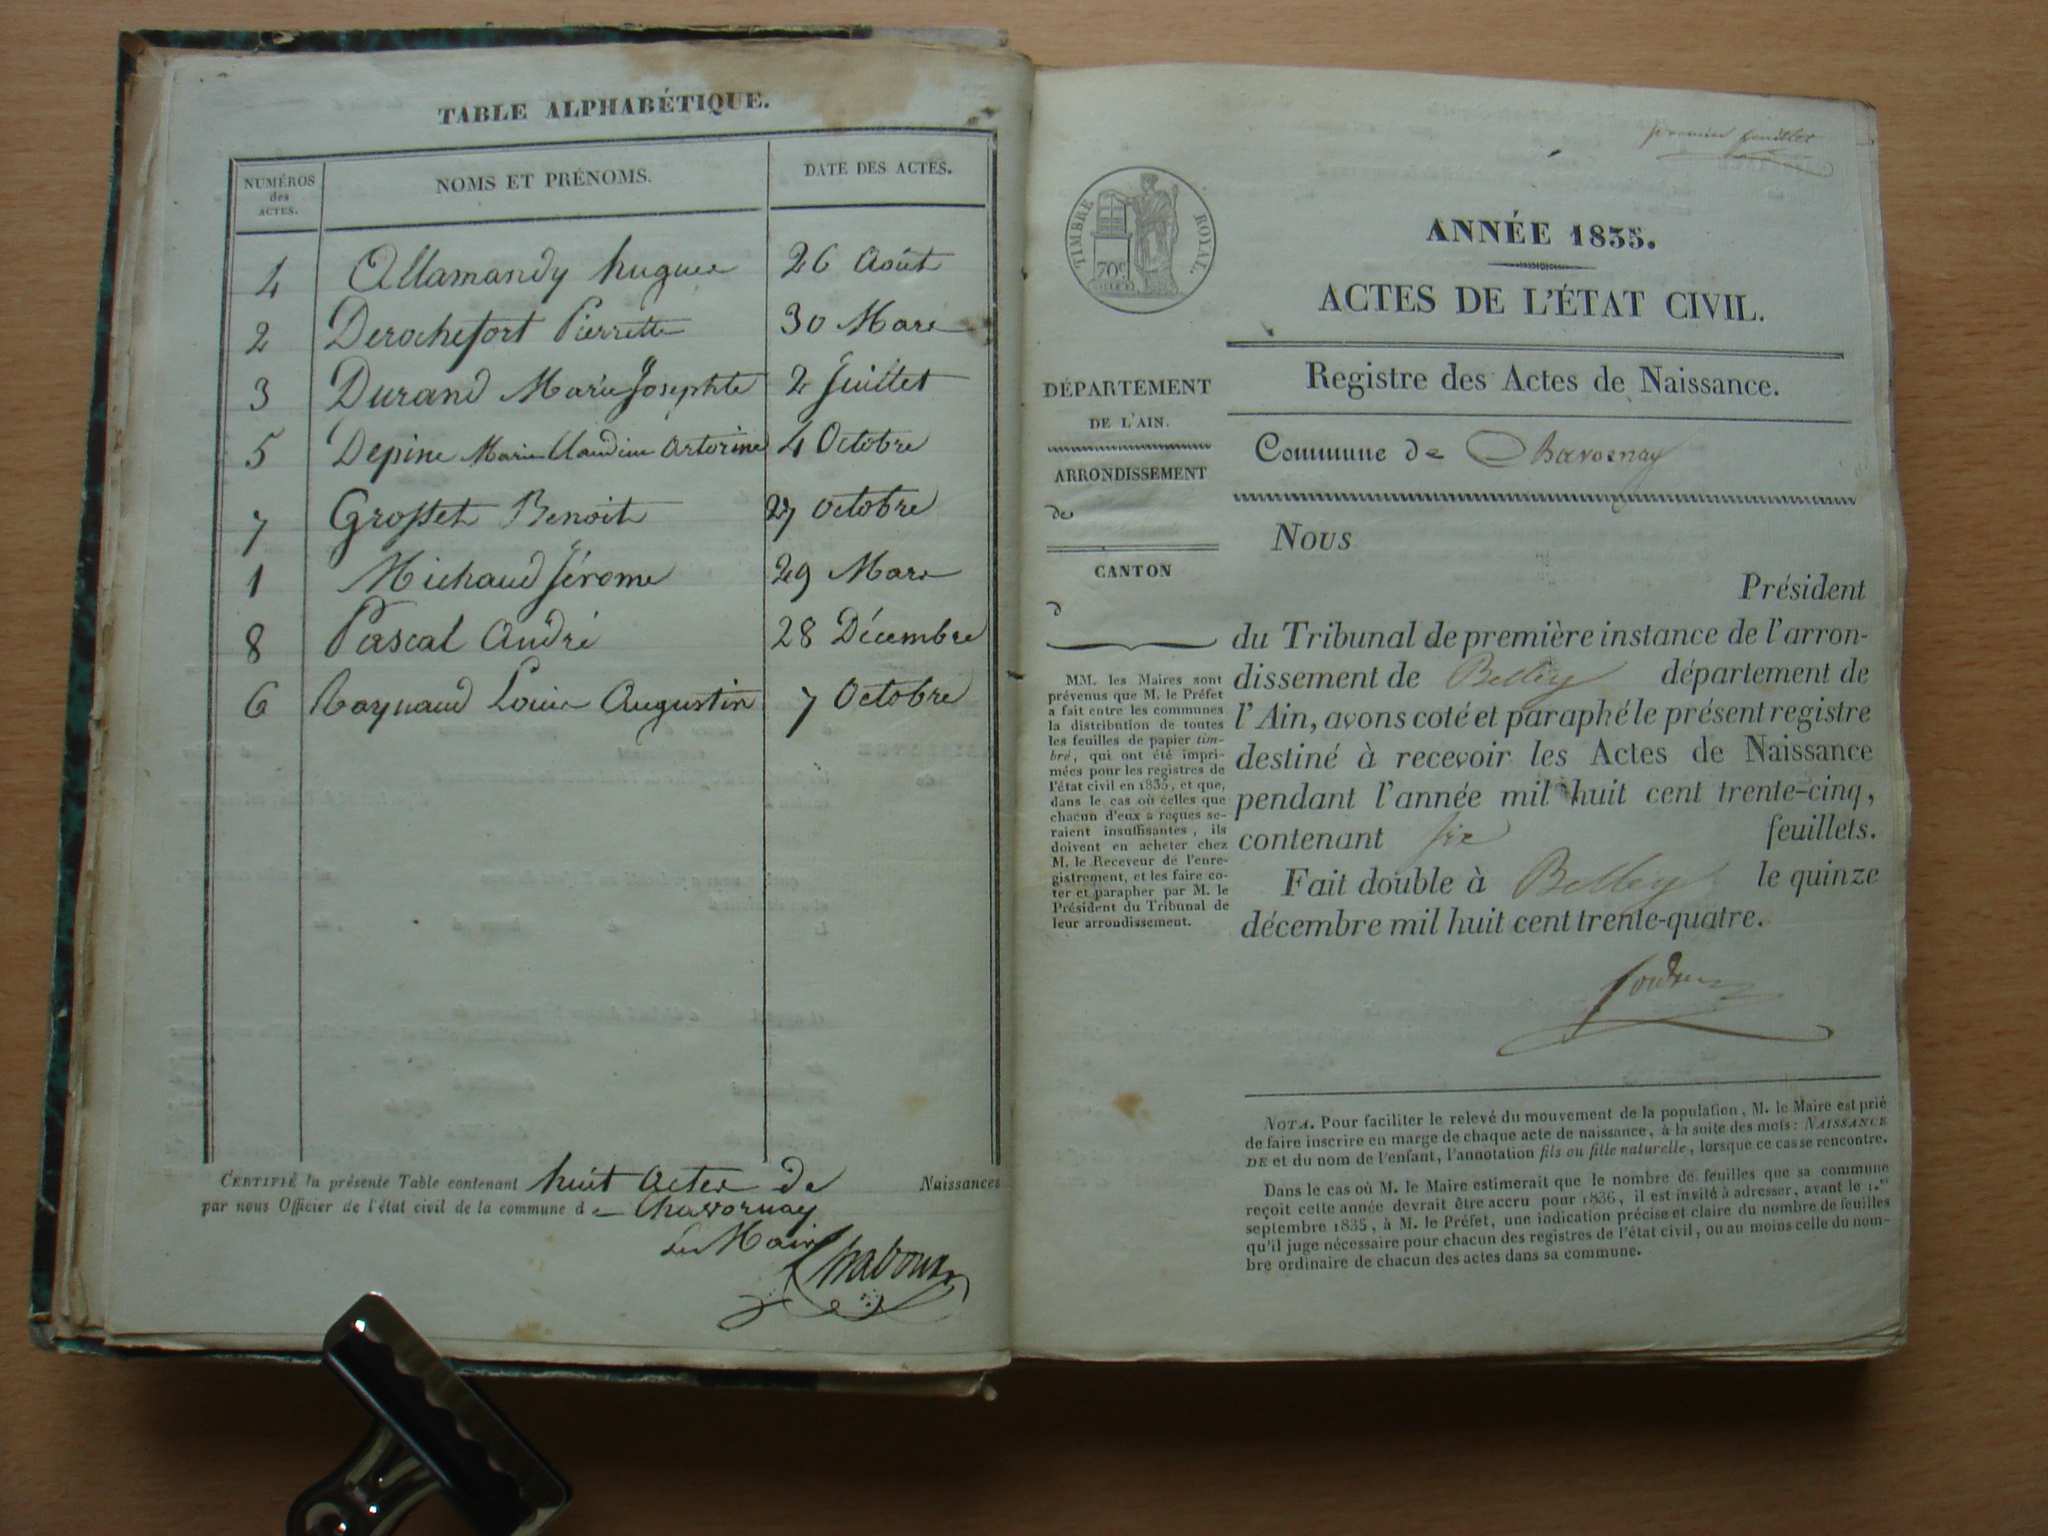 TABLE ALPHABÉTIQUE.
NUMÉROS des ACTES. NOMS ET PRÉNOMS. DATE DES ACTES.
4 Allamandy hugues 26 Août
2 Derochefort Pierrette 30 Mars
3 Durand Marie Josephte 2 Juillet
5 Depine Marie Claudine Antorine 4 Octobre
7 Grosset Benoit 27 octobre
1 Michaud Jérome 29 Mars
8 Pascal André 28 Décembre
6 Raynaud Louis Augustin 7 Octobre
CERTIFIÉ la présente Table contenant huit Actes de Naissances
par nous Officier de l'état civil de la commune de Chavornay
Le Maire
premier feuillet
TIMBRE ROYAL.
70c
ANNÉE 1835.
ACTES DE L'ÉTAT CIVIL.
Registre des Actes de Naissance.
Commune de Chavornay
DÉPARTEMENT
DE L'AIN.
ARRONDISSEMENT
de
CANTON
d
MM. les Maires sont
prévenus que M. le Préfet
a fait entre les communes
la distribution de toutes
les feuilles de papier tim-
bré, qui ont été impri-
mées pour les registres de
l'état civil en 1835, et que,
dans le cas où celles que
chacun d'eux a reçues se-
raient insuffisantes, ils
doivent en acheter chez
M. le Receveur de l'enre-
gistrement, et les faire co-
ter et parapher par M. le
Président du Tribunal de
leur arrondissement.
Nous
Président
du Tribunal de première instance de l'arron-
dissement de Belley département de
l'Ain, avons coté et paraphé le présent registre
destiné à recevoir les Actes de Naissance
pendant l'année mil huit cent trente-cinq,
contenant six feuillets.
Fait double à Belley le quinze
décembre mil huit cent trente-quatre.
NOTA. Pour faciliter le relevé du mouvement de la population, M. le Maire est prié
de faire inscrire en marge de chaque acte de naissance, à la suite des mots: NAISSANCE
DE et du nom de l'enfant, l'annotation fils ou fille naturelle, lorsque ce cas se rencontre.
Dans le cas où M. le Maire estimerait que le nombre de feuilles que sa commune
reçoit cette année devrait être accru pour 1836, il est invité à adresser, avant le 1.er
septembre 1835, à M. le Préfet, une indication précise et claire du nombre de feuilles
qu'il juge nécessaire pour chacun des registres de l'état civil, ou au moins celle du nom-
bre ordinaire de chacun des actes dans sa commune.